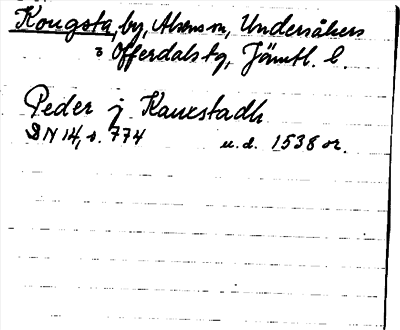 Kougsta, by, Alsens sn, Undersåkers
o Offerdals tg, Jämtl. l.
Peder j Kauxstadh
DN 14, s. 774 u.d. 1538 or.